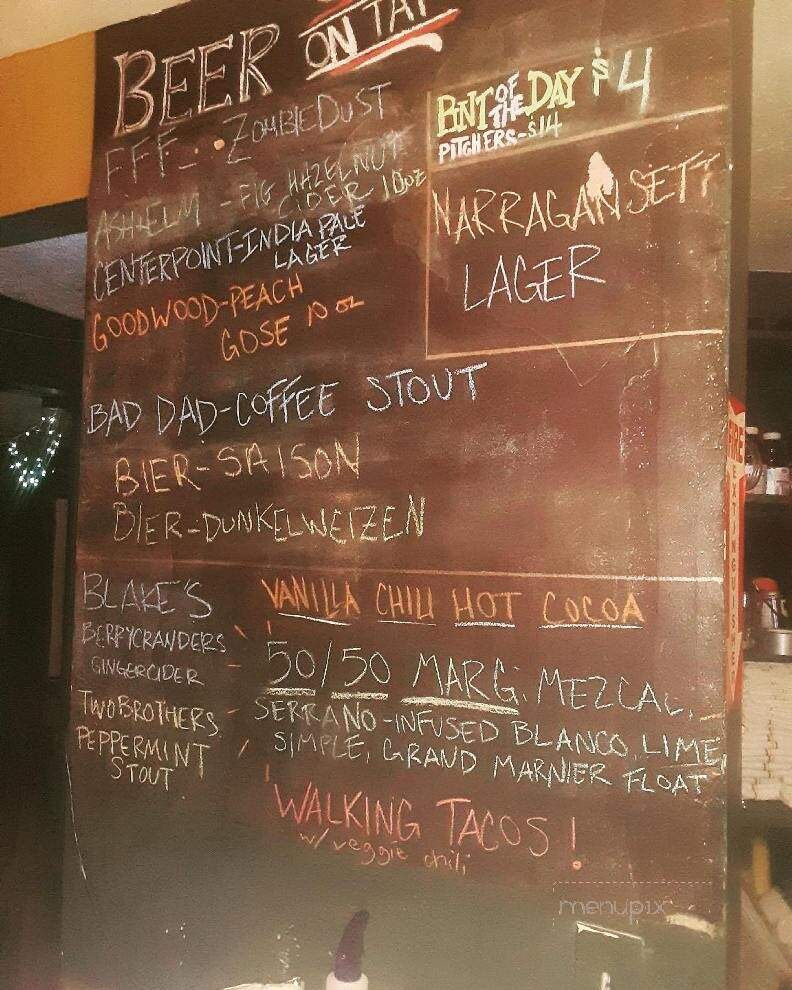 BEER ON TAP
FFF - ZOMBIE DUST
ASH & ELM - FIG HAZELNUT
CIDER 10oz
CENTERPOINT-INDIA PALE
LAGER
GOODWOOD-PEACH
GOSE 10 oz
BAD DAD-COFFEE STOUT
BIER-SAISON
BIER-DUNKELWEIZEN
PINT OF THE DAY $4
PITCHERS-$14
NARRAGANSETT
LAGER
BLAKE'S
GINGERCIDER
TWO BROTHERS
PEPPERMINT
STOUT
VANILLA CHILI HOT COCOA
50/50 MARG: MEZCAL,
SERRANO-INFUSED BLANCO, LIME,
SIMPLE, GRAND MARNIER FLOAT
WALKING TACOS!
w/ veggie chili
FIRE
EXTINGUISHER
menupix